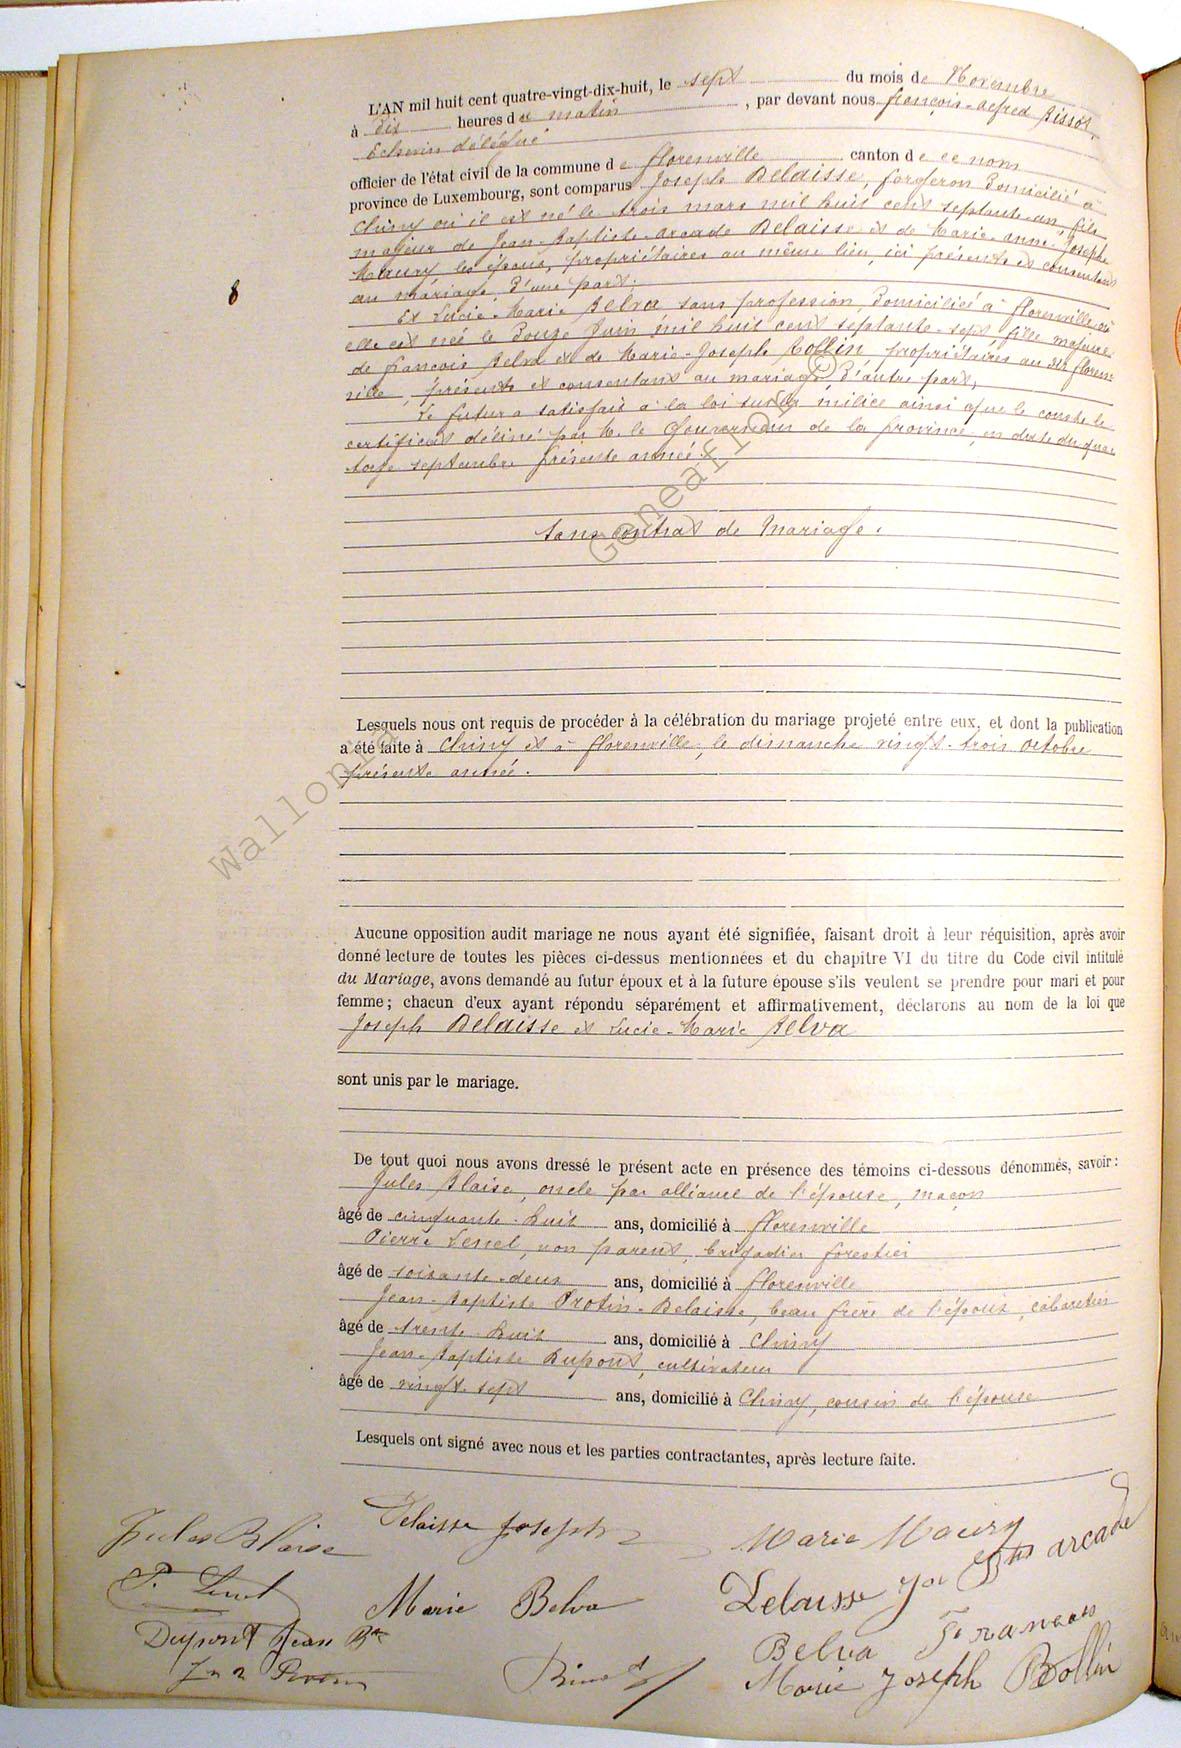 L'AN mil huit cent quatre-vingt-dix-huit, le sept du mois de Novembre
à dix heures du matin, par devant nous françois-alfred
Echevin délégué
officier de l'état civil de la commune de florenville canton de ce nom
province de Luxembourg, sont comparus Joseph Delaisse, forgeron domicilié à
Chiny où il est né le trois mars mil huit cent septante-un, fils
majeur de Jean-Baptiste-arcade Delaisse et de Marie-anne-Joseph
Maury les époux, propriétaires au même lieu, ici présents et consentants
au mariage, d'une part;
8
Et Lucie-Marie Belva sans profession, domiciliée à florenville où
elle est née le douze Juin mil huit cent septante-sept fille majeure
de françois Belva et de Marie-Joseph Bollin, propriétaires au dit floren-
ville, présents et consentant au mariage d'autre part,
Le futur a satisfait à la loi sur la milice ainsi que le conste le
certificat délivré par M. le Gouverneur de la province, en date du qua-
torze septembre présente année.
Sans contrat de Mariage.
Lesquels nous ont requis de procéder à la célébration du mariage projeté entre eux, et dont la publication
a été faite à Chiny et à florenville, le dimanche vingt-trois octobre
présente année.
Wallonia
Geneafrance ©
Aucune opposition audit mariage ne nous ayant été signifiée, faisant droit à leur réquisition, après avoir
donné lecture de toutes les pièces ci-dessus mentionnées et du chapitre VI du titre du Code civil intitulé
du Mariage, avons demandé au futur époux et à la future épouse s'ils veulent se prendre pour mari et pour
femme; chacun d'eux ayant répondu séparément et affirmativement, déclarons au nom de la loi que
Joseph Delaisse et Lucie-Marie Belva
sont unis par le mariage.
De tout quoi nous avons dressé le présent acte en présence des témoins ci-dessous dénommés, savoir:
Jules Blaise, oncle par alliance de l'épouse, maçon
âgé de cinquante-huit ans, domicilié à florenville
Pierre, non parent, brigadier forestier
âgé de soixante-deux ans, domicilié à florenville
Jean-Baptiste Protin-Delaisse, beau frère de l'époux, cabaretier
âgé de trente-huit ans, domicilié à Chiny
Jean-Baptiste Dupont, cultivateur
âgé de vingt-sept ans, domicilié à Chiny, cousin de l'épouse
Lesquels ont signé avec nous et les parties contractantes, après lecture faite.
Jules Blaise
Delaisse Joseph
Marie Maury
P.
Marie Belva
Delaisse Jean Btte arcade
Dupont Jean Bte
Belva francois
Marie Joseph Bollin